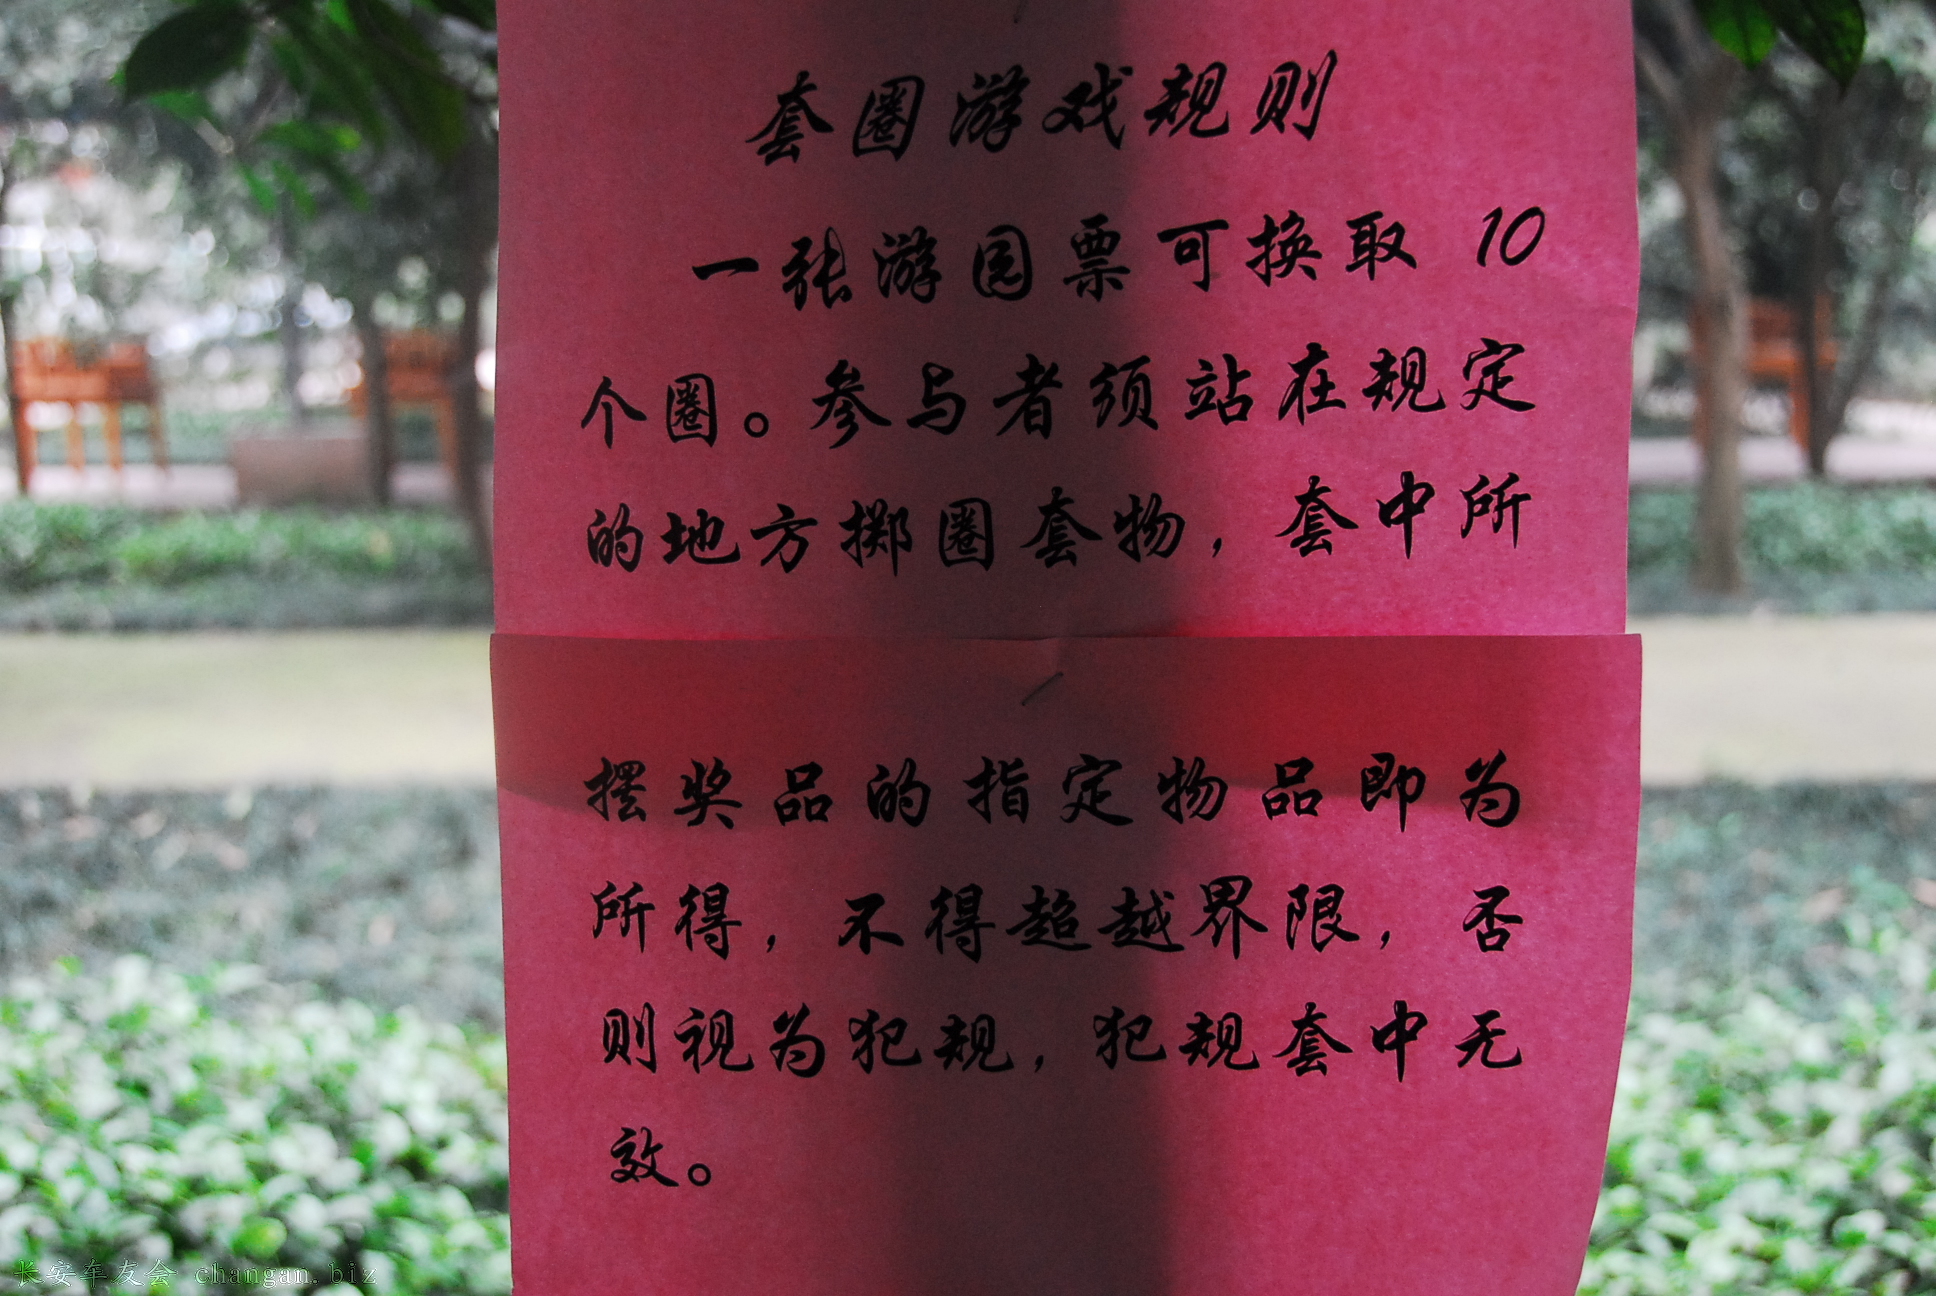 套圈游戏规则
一张游园票可换取 10
个圈。参与者须站在规定
的地方掷圈套物，套中所
摆奖品的指定物品即为
所得，不得超越界限，否
则视为犯规，犯规套中无
效。
长安车友会 changan.biz